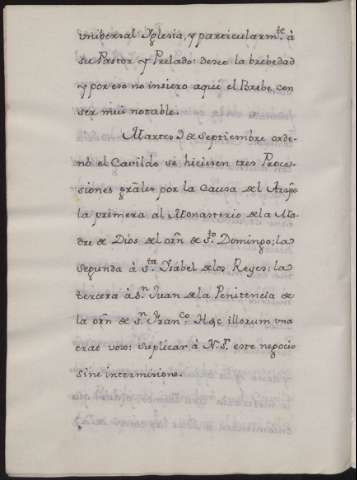 Unibersal Iglesia, y particularm.te à
su Pastor y Prelado: deseo la brebedad
y por eso no insiero aqui el Brebe, con
ser mui notable.
Martes 9 de Septiembre orde-
nó el Cavildo se hiciesen tres Proce-
siones grãles por la Causa del Arzpo
la primera al Monasterio de la Ma-
dre de Dios del orñ de S.to Domingo; la
segunda à S.ta Isabel de los Reyes; la
tercera à S.n Juan de la Penitencia de
la orñ de S.n Fran.co Hæc illorum una
erat vox: suplicar à N. S.r este negocio
sine intermisione.